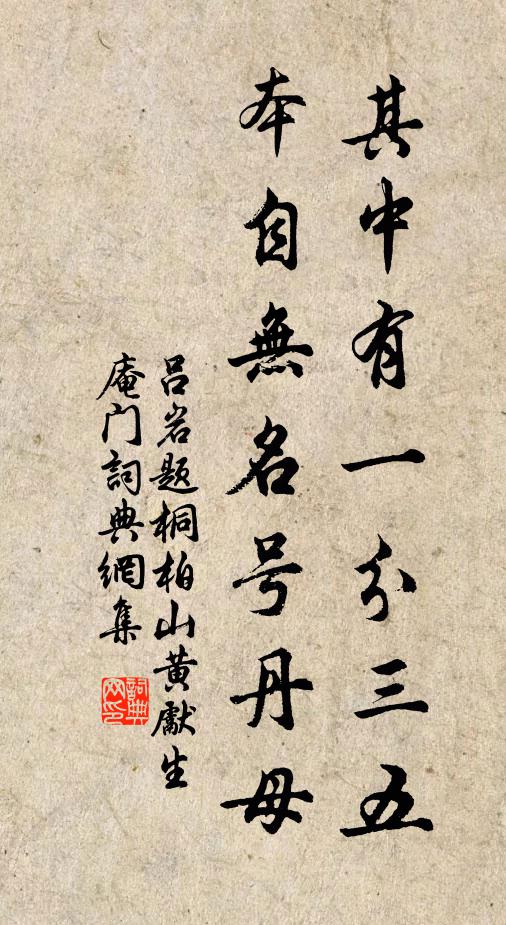 其中有一分三五
本自無名号丹母
吕岩题桐柏山黄獻生
庵门詞典網集
詞典
网印